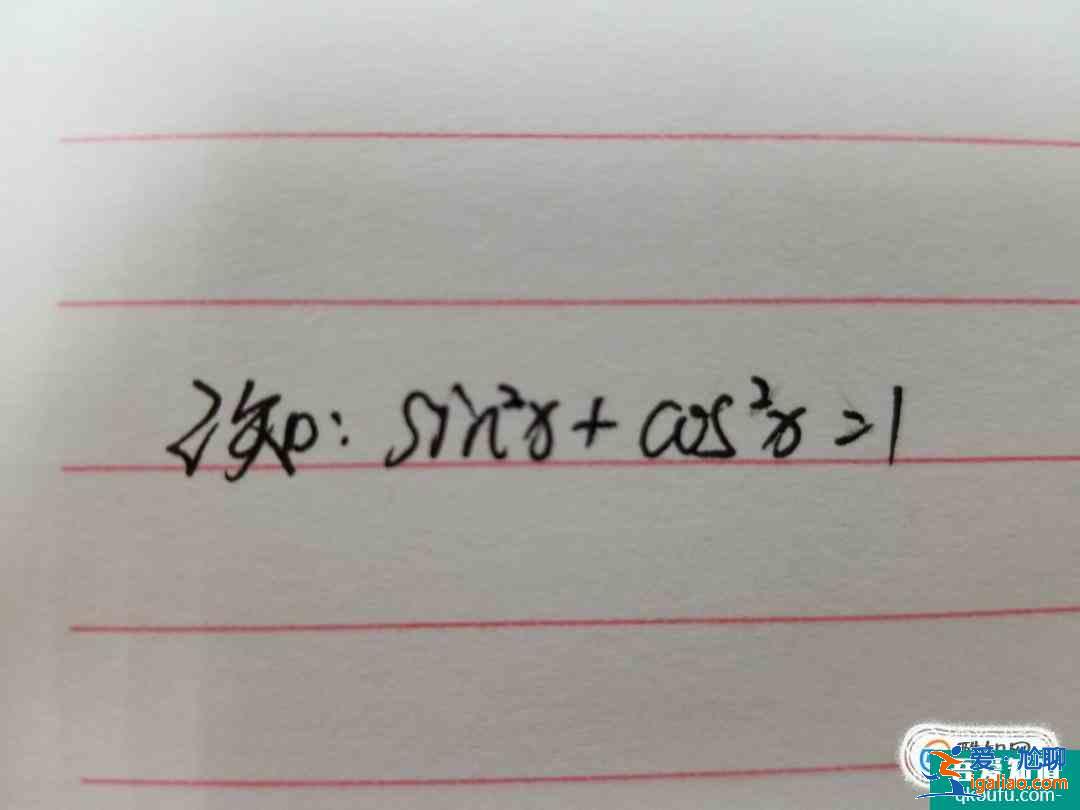 已知: sin²x + cos²x = 1
爱尬聊
igaliao.com
qkoufu.com